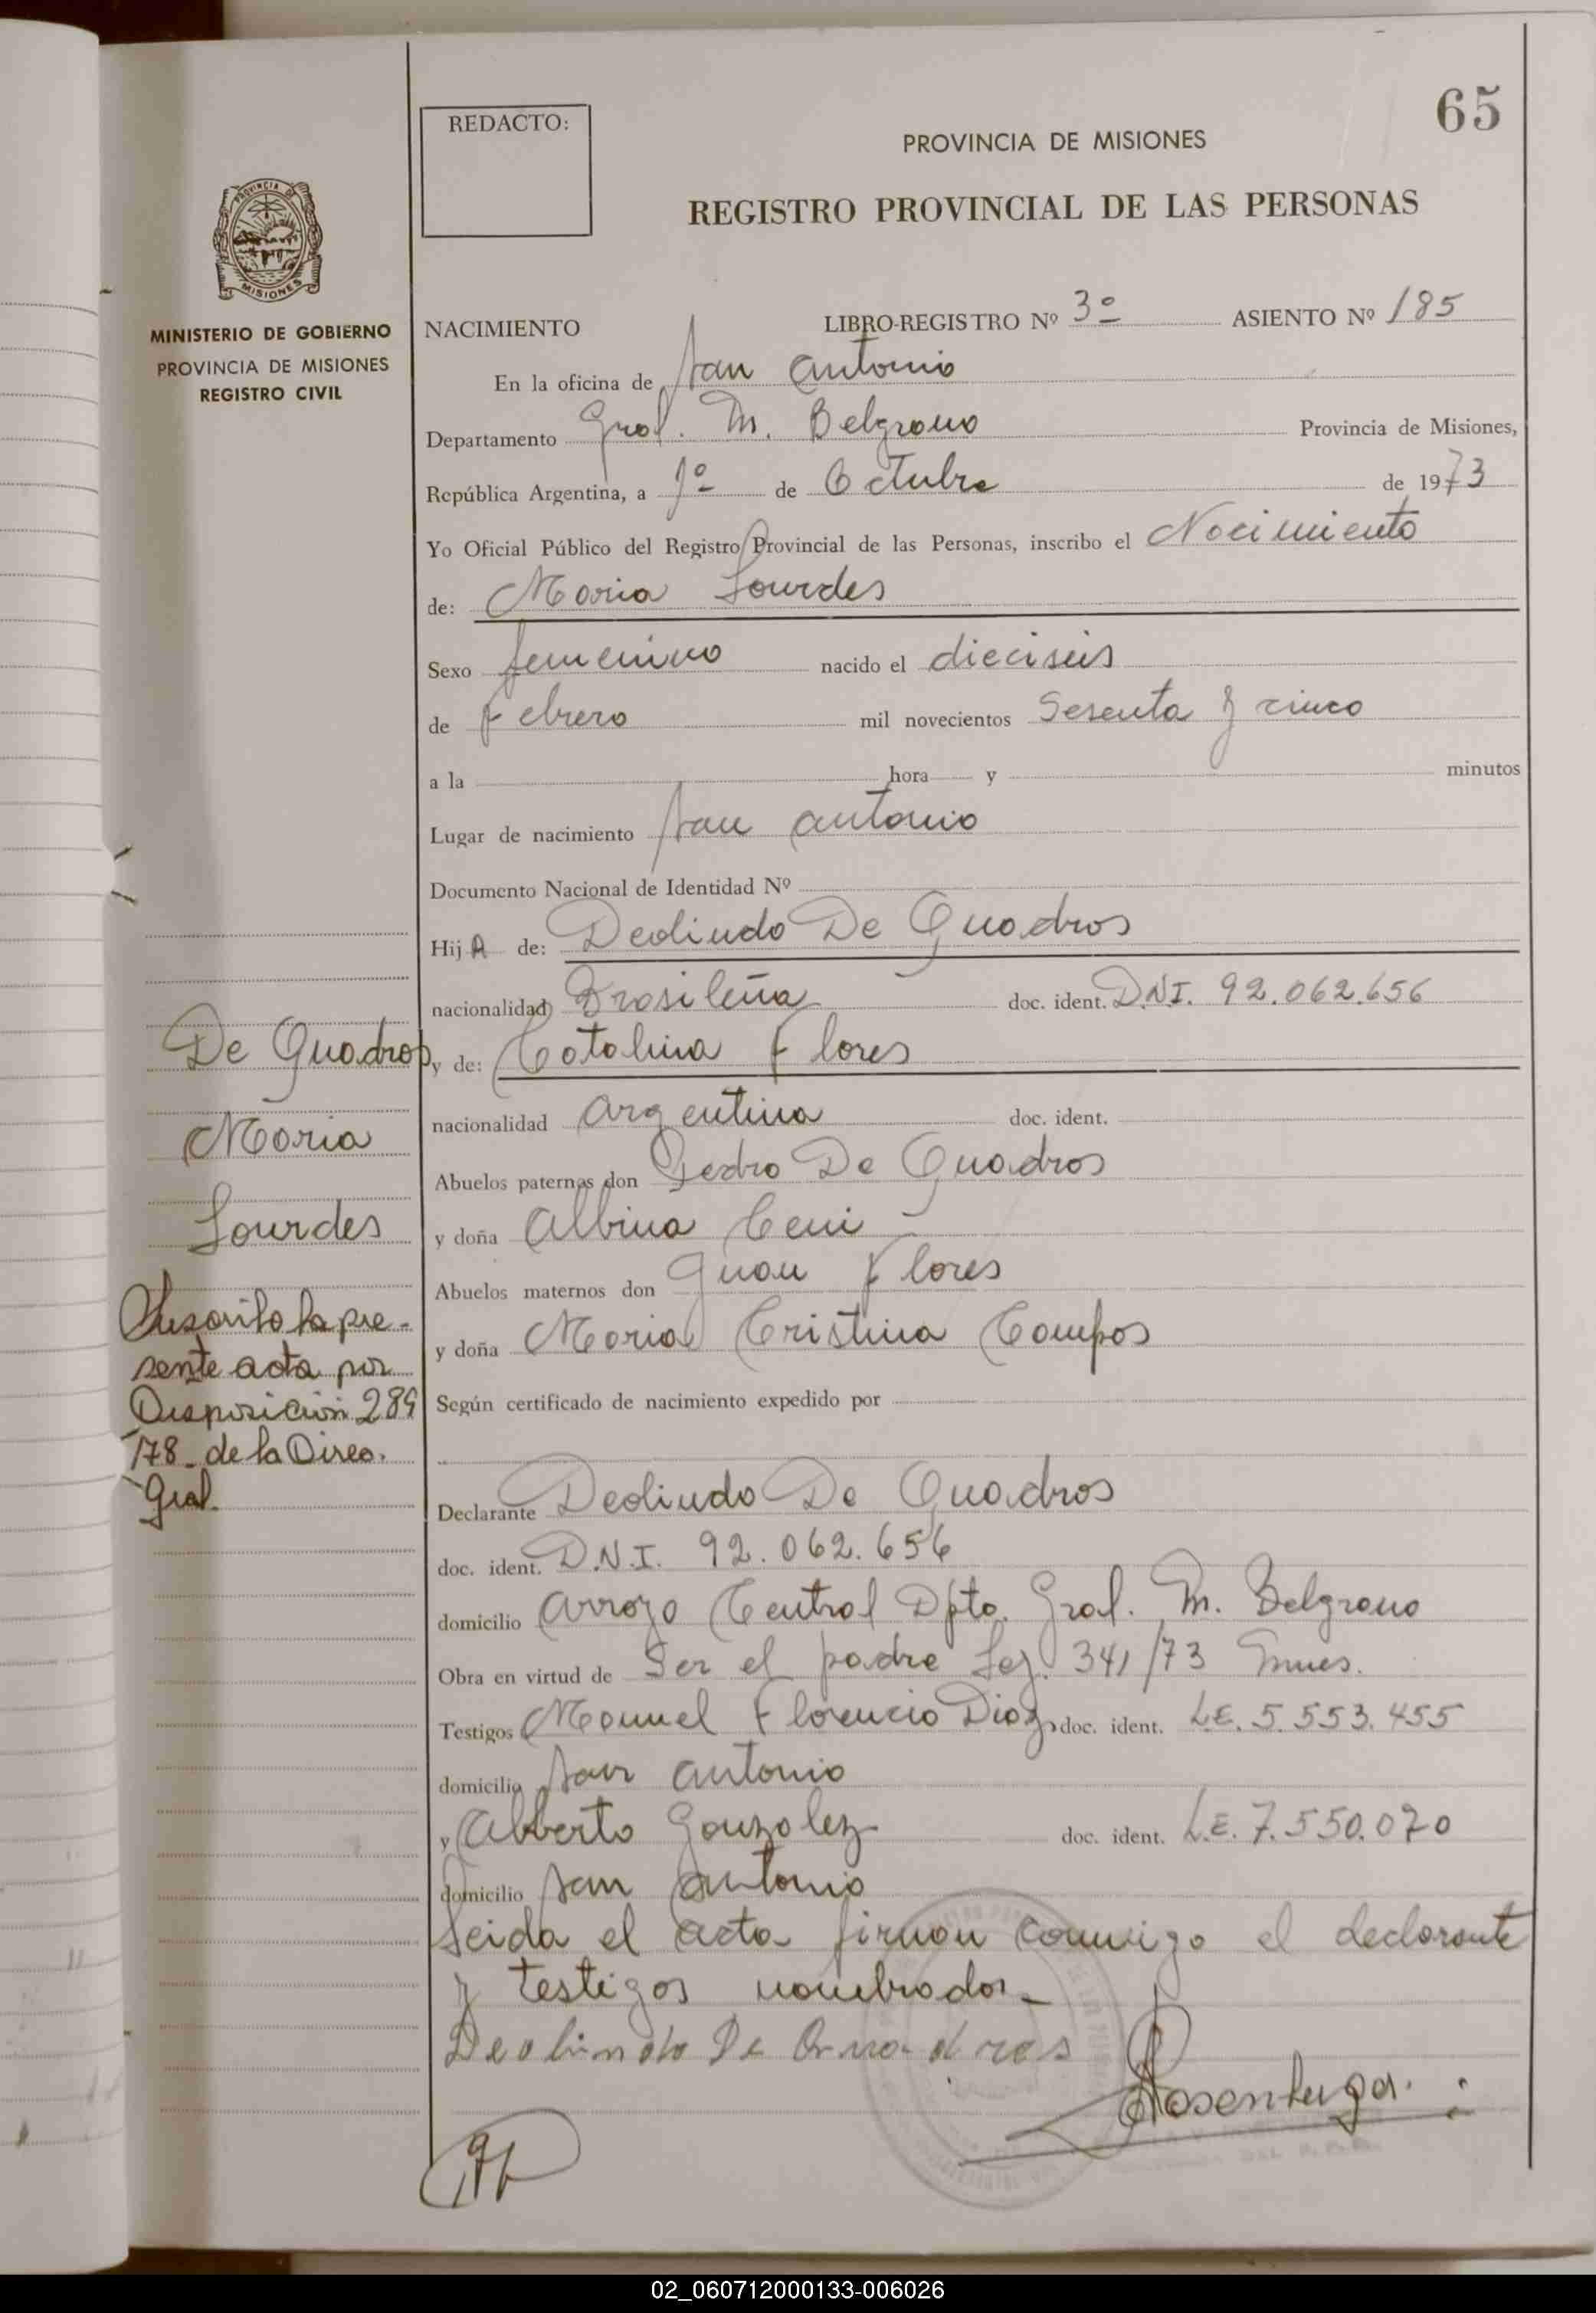 65
REDACTO:
PROVINCIA DE MISIONES
REGISTRO PROVINCIAL DE LAS PERSONAS
PROVINCIA DE
MISIONES
MINISTERIO DE GOBIERNO
PROVINCIA DE MISIONES
REGISTRO CIVIL
NACIMIENTO LIBRO-REGISTRO Nº 3º ASIENTO Nº 185
En la oficina de San Antonio
Departamento Gral. M. Belgrano Provincia de Misiones,
República Argentina, a 1º de Octubre de 1973
Yo Oficial Público del Registro Provincial de las Personas, inscribo el Nacimiento
de: Maria Lourdes
Sexo femenino nacido el dieciseis
de Febrero mil novecientos Sesenta y cinco
a la hora y minutos
Lugar de nacimiento San Antonio
Documento Nacional de Identidad Nº
Hij A de: Deolindo De Quadros
nacionalidad Brasileña doc. ident. D.N.I. 92.062.656
y de: Catalina Flores
nacionalidad Argentina doc. ident.
Abuelos paternos don Pedro De Quadros
y doña Albina Ceni
Abuelos maternos don Juan Flores
y doña Maria Cristina Campos
Según certificado de nacimiento expedido por
Declarante Deolindo De Quadros
doc. ident. D.N.I. 92.062.656
domicilio Arroyo Central Dpto. Gral. M. Belgrano
Obra en virtud de Ser el padre Ley. 341/73
Testigos Manuel Florencio Diaz doc. ident. L.E. 5.553.455
domicilio San Antonio
y Alberto Gonzalez doc. ident. L.E. 7.550.070
domicilio San Antonio
Leida el acta firman conmigo el declarante
y testigos nombrados.-
Deolindo De Quadros
De Quadros
Maria
Lourdes
Suscrito la pre-
sente acta por
Disposición 289
/78 - de la Direc.
Gral.
02_060712000133-006026